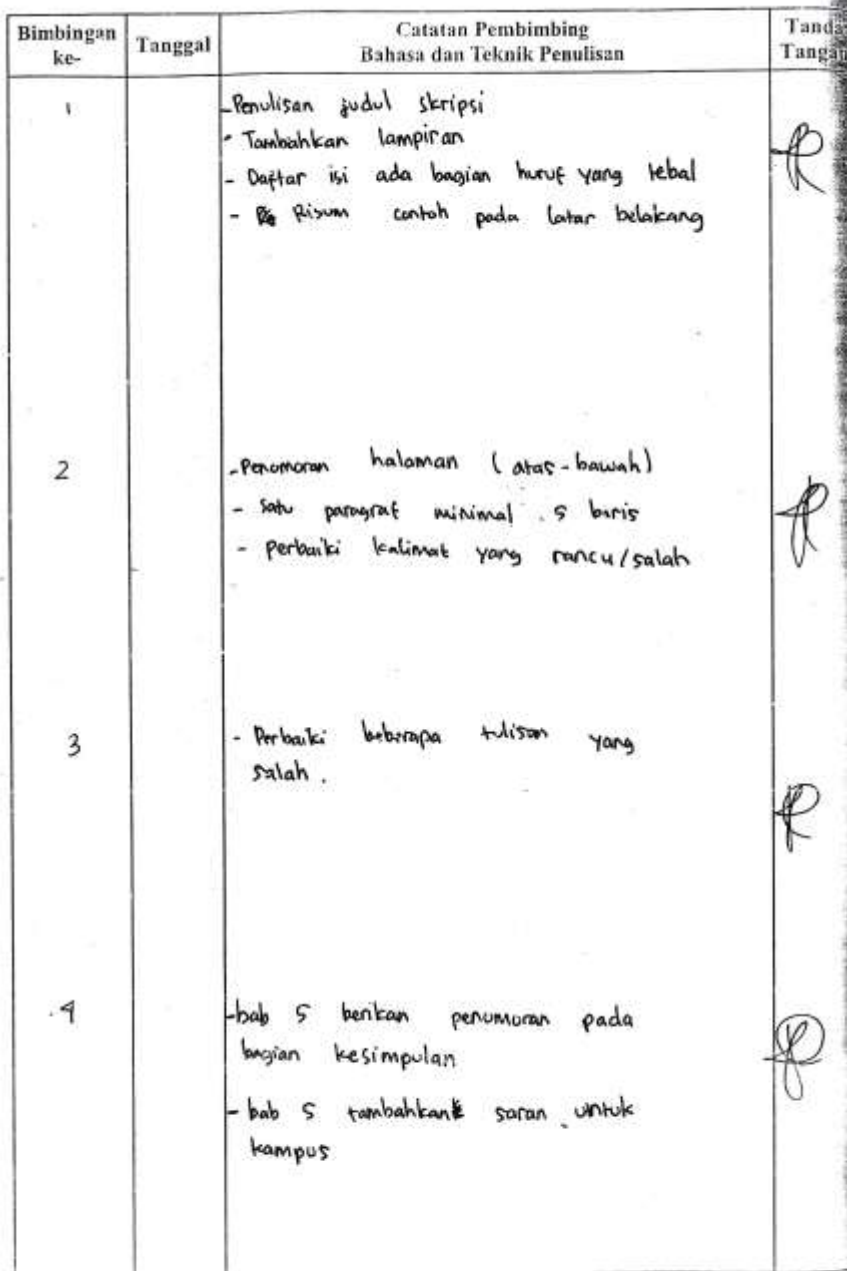 Bimbingan ke-
Tanggal
Catatan Pembimbing
Bahasa dan Teknik Penulisan
Tanda
Tangan
1
- Penulisan judul skripsi
- Tambahkan lampiran
- Daftar isi ada bagian huruf yang tebal
- Risum contoh pada latar belakang
2
- Penomoran halaman (atas-bawah)
- Satu paragraf minimal 5 baris
- perbaiki kalimat yang rancu/salah
3
- Perbaiki beberapa tulisan yang
salah.
4
- bab 5 berikan penumoran pada
bagian kesimpulan
- bab 5 tambahkan saran untuk
kampus